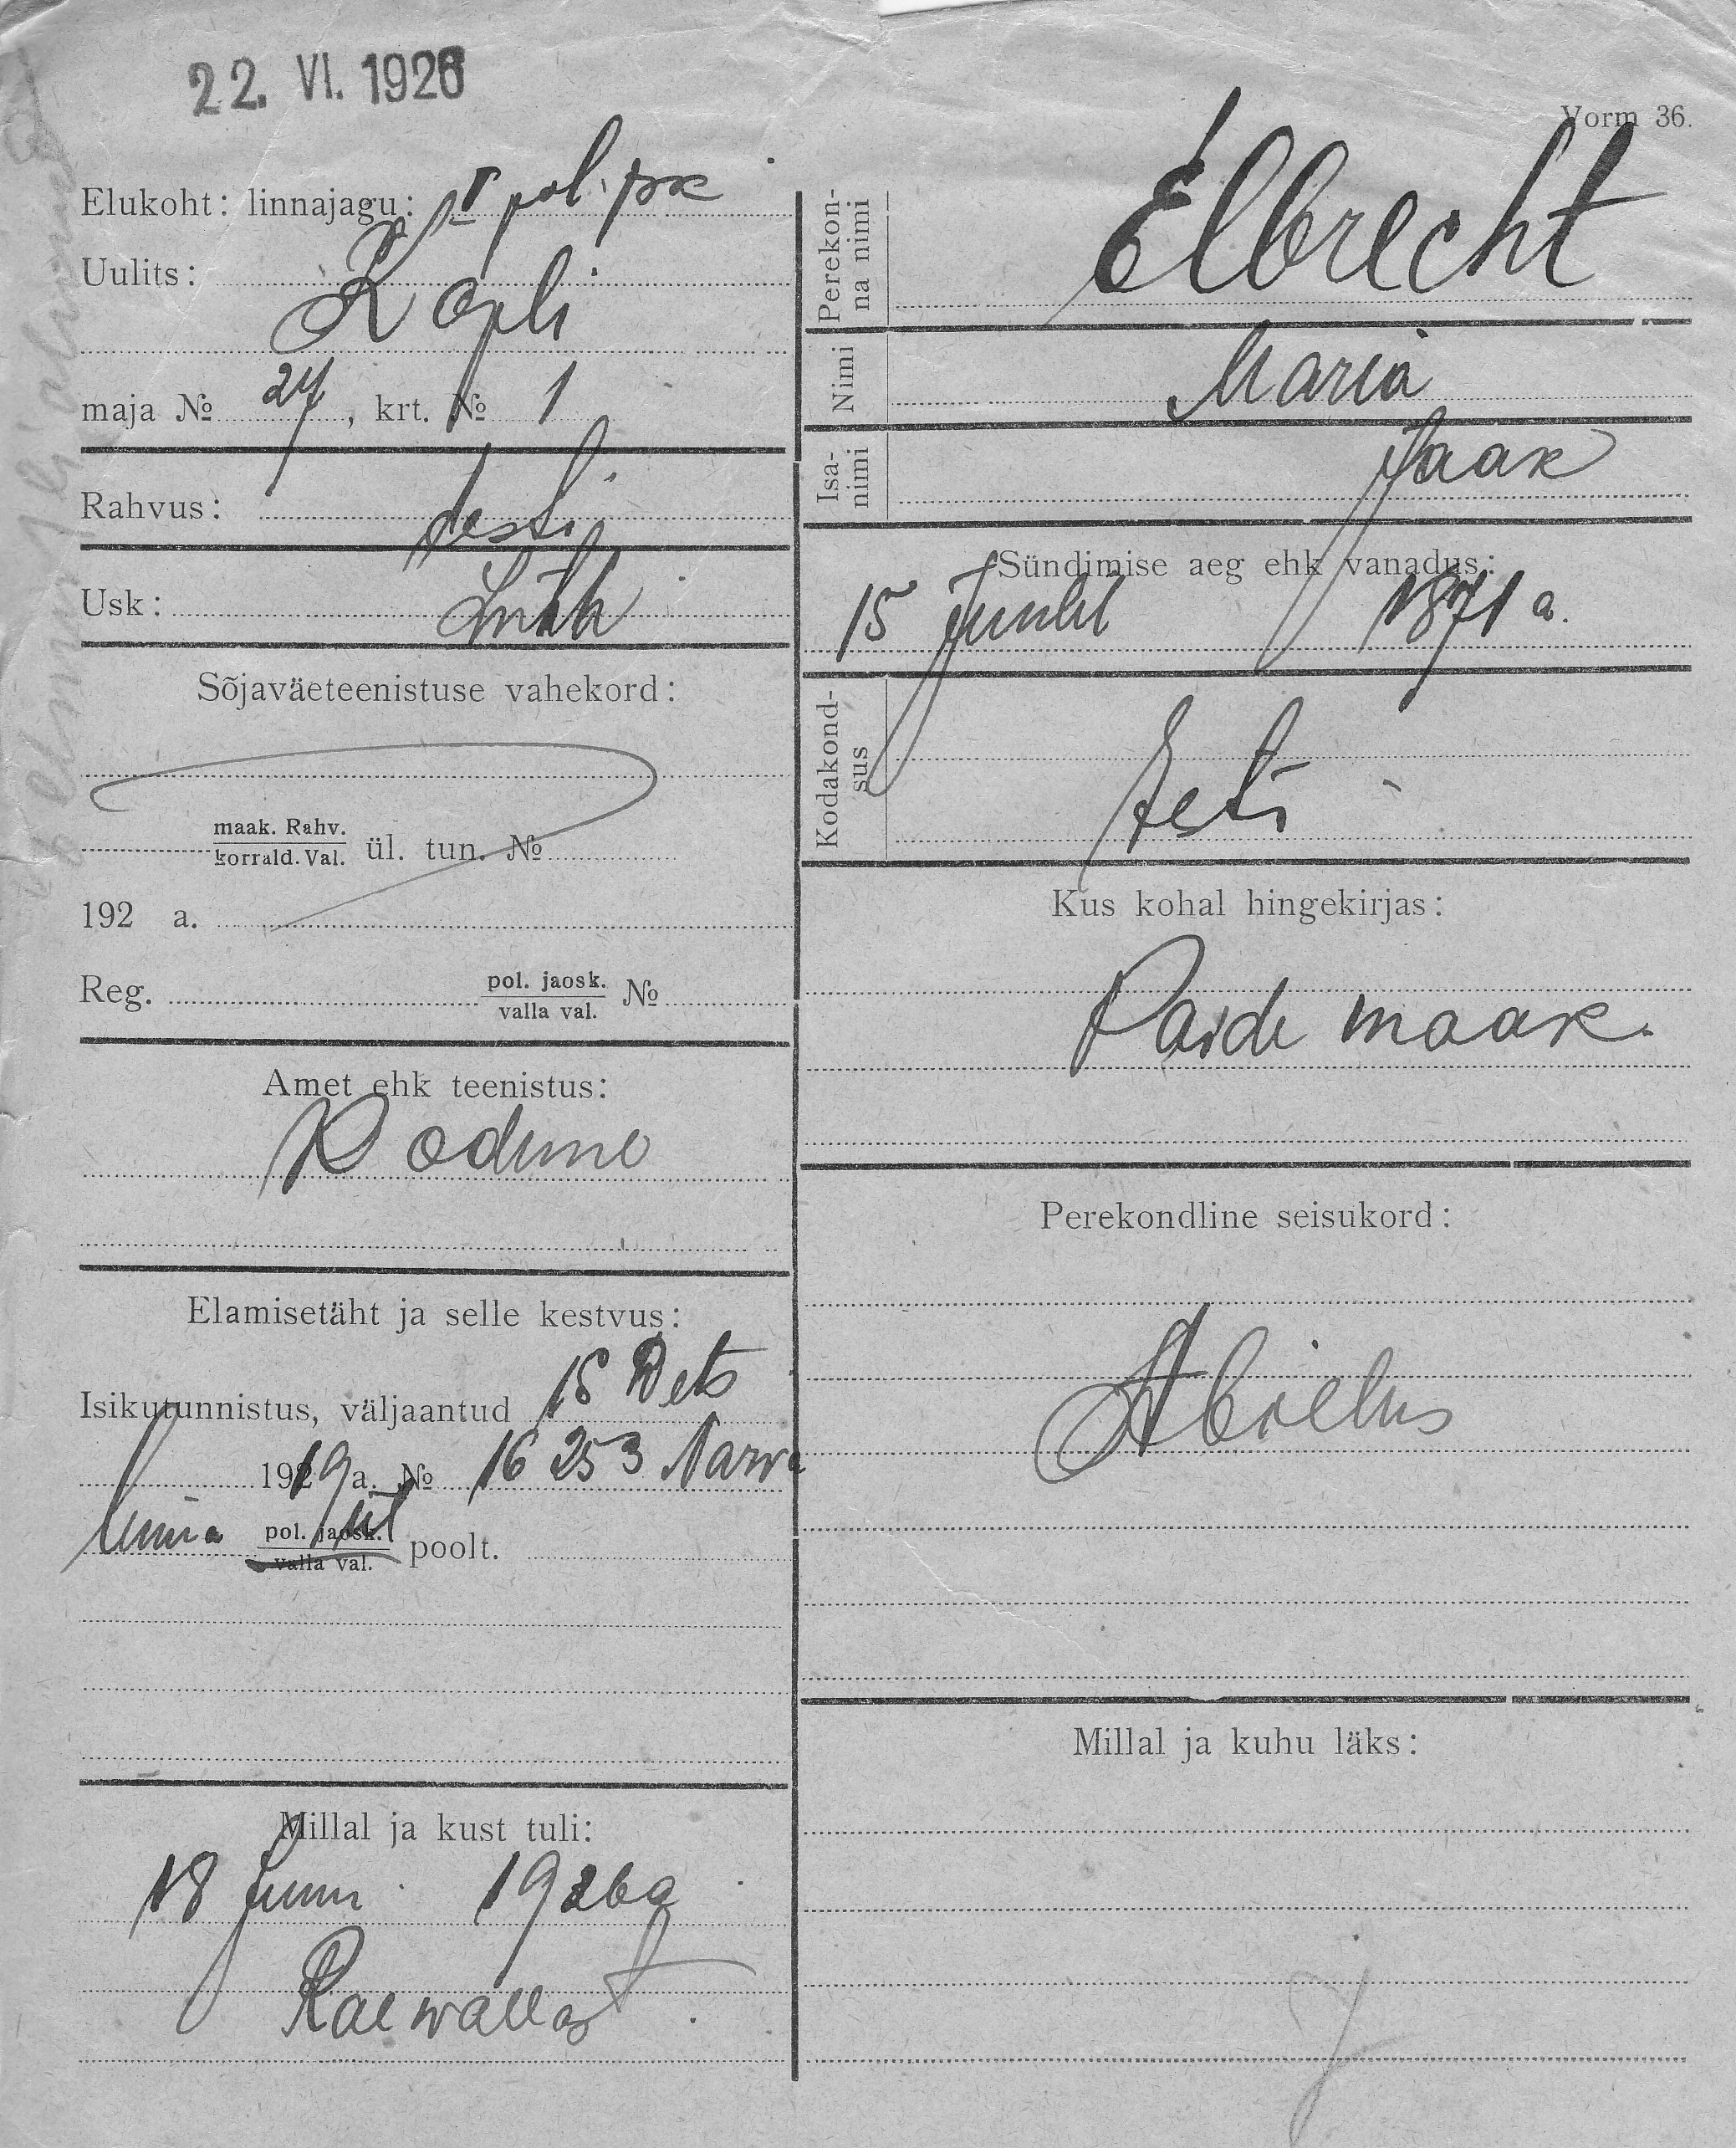 22. VI. 1926
Vorm 36.
Elukoht: linnajagu: pol. jsk
Uulits: Kopli
maja № 27, krt. № 1
Rahvus: Eesti
Usk: Luth
Sõjaväeteenistuse vahekord:
maak. Rahv.
korrald. Val. ül. tun. №
192 a.
Reg. pol. jaosk. №
valla val.
Amet ehk teenistus:
Kodune
Elamisetäht ja selle kestvus:
Isikutunnistus, väljaantud 18 Dets
1919 a. № 16253 Narva
linna pol. jaosk. ül poolt.
valla val.
Millal ja kust tuli:
18 Juuni 1926 a
Rae wallast
Perekon-
na nimi Elbrecht
Nimi Maria
Isa-
nimi Jaak
Sündimise aeg ehk vanadus:
15 Juulil 1871 a.
Kodakond-
sus Eesti
Kus kohal hingekirjas:
Paide maak.
Perekondline seisukord:
Abielus
Millal ja kuhu läks: